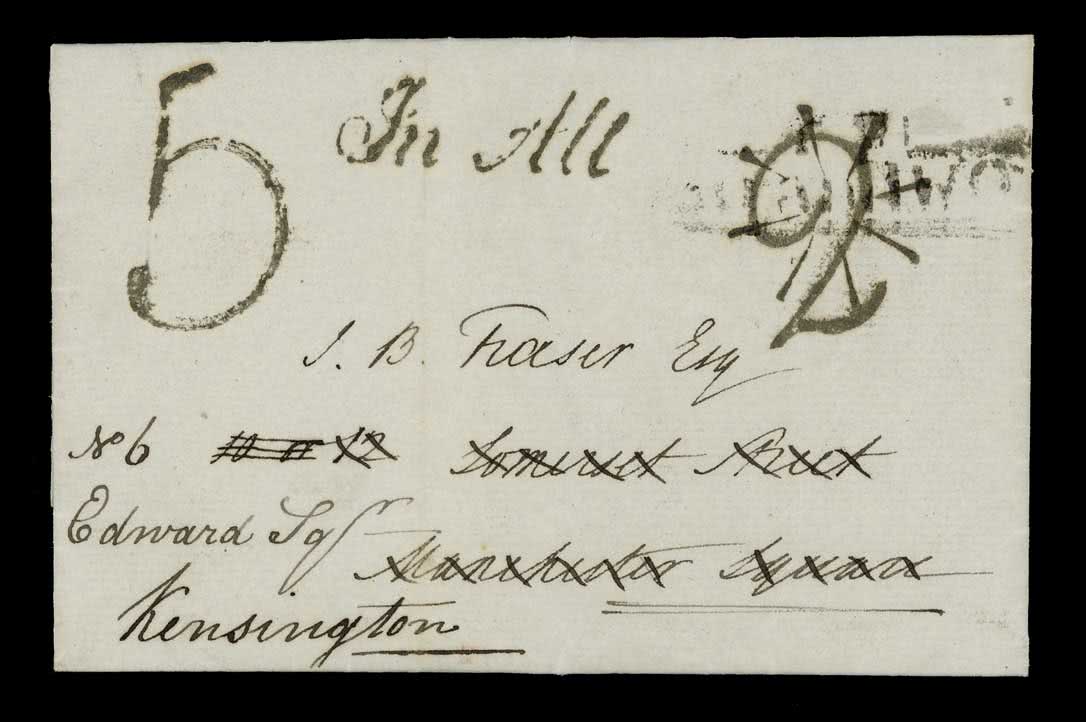 5 In All 2
J. B. Fraser Esq
No 6 10 or 12 Somerset Street
Edward Sqr Manchester Square
Kensington